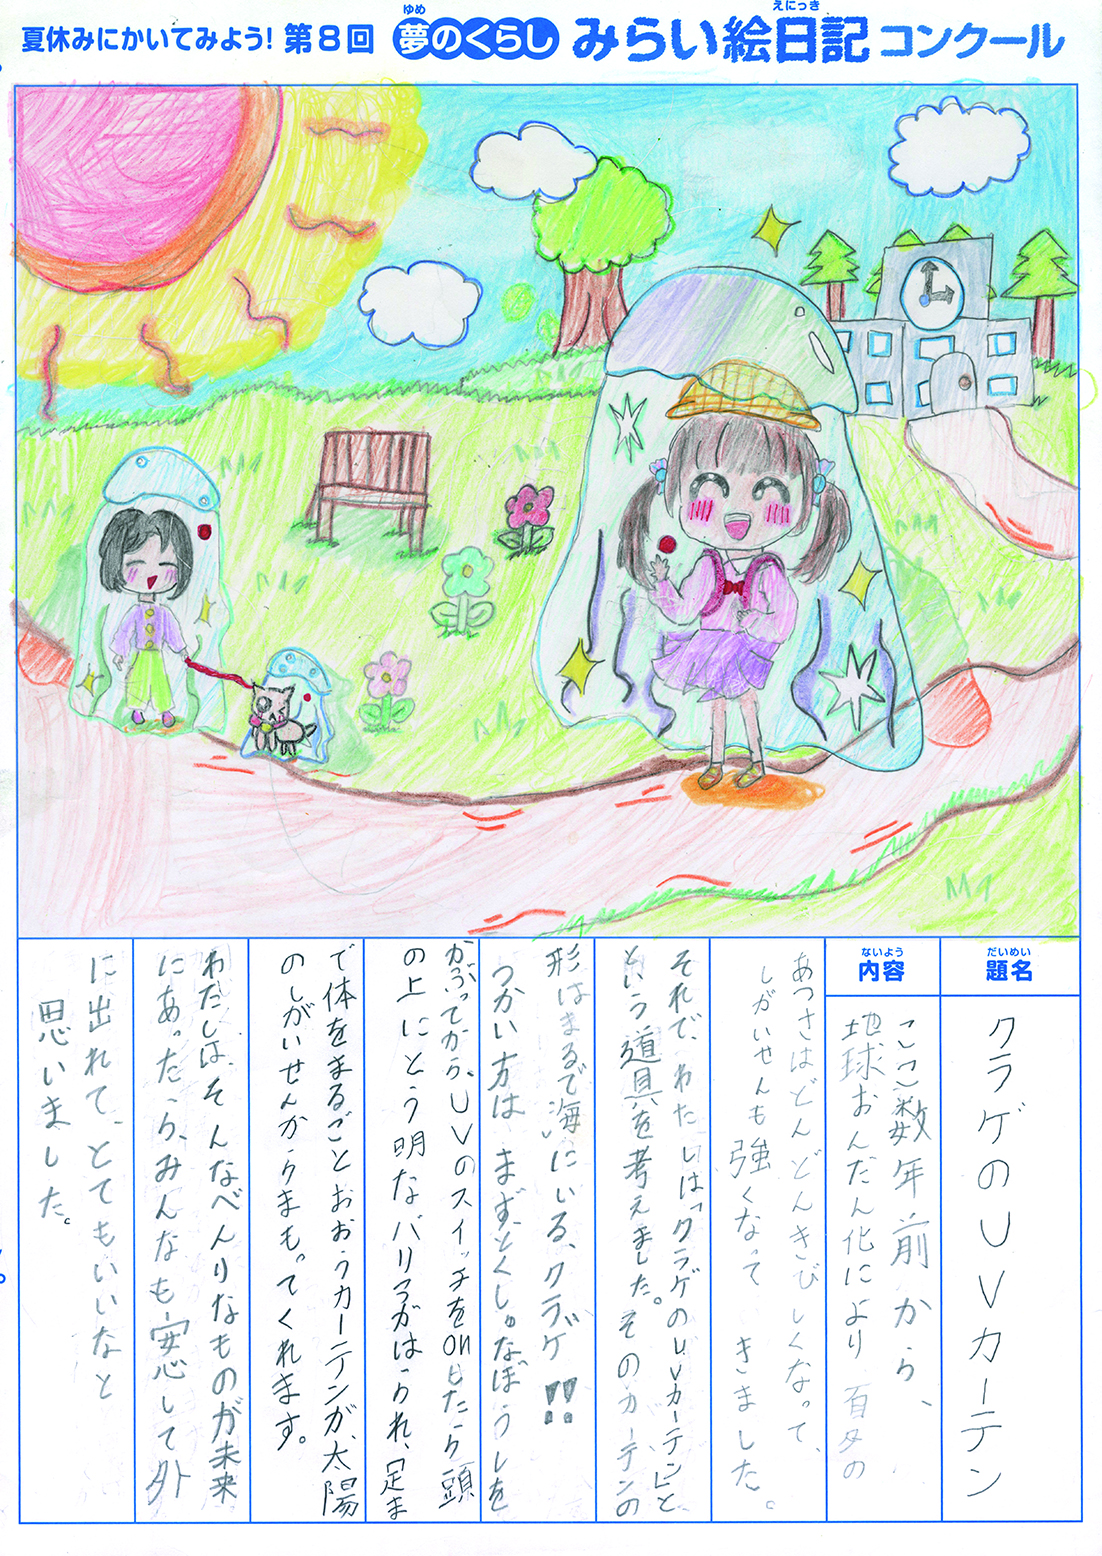 夏休みにかいてみよう！第8回 夢のくらし みらい絵日記コンクール
ゆめ
えにっき
だいめい
題名
クラゲのUVカーテン
ないよう
内容
ここ数年前から、
地球おんだん化により 夏の
あつさはどんどんきびしくなって、
しがいせんも強くなって きました。
それで、わたしは「クラゲのUVカーテン」と
という道具を考えました。そのカーテンの
形はまるで海にいる、クラゲ!!
つかい方は、まず、とくしゅなぼうしを
かぶってから、UVのスイッチをonしたら頭
の上にとう明なバリアがはられ、足ま
で体をまるごとおおうカーテンが、太陽
のしがいせんからまもってくれます。
わたしは、そんなべんりなものが未来
にあったら、みんなも安心して外
に出れて、とてもいいなと
思いました。